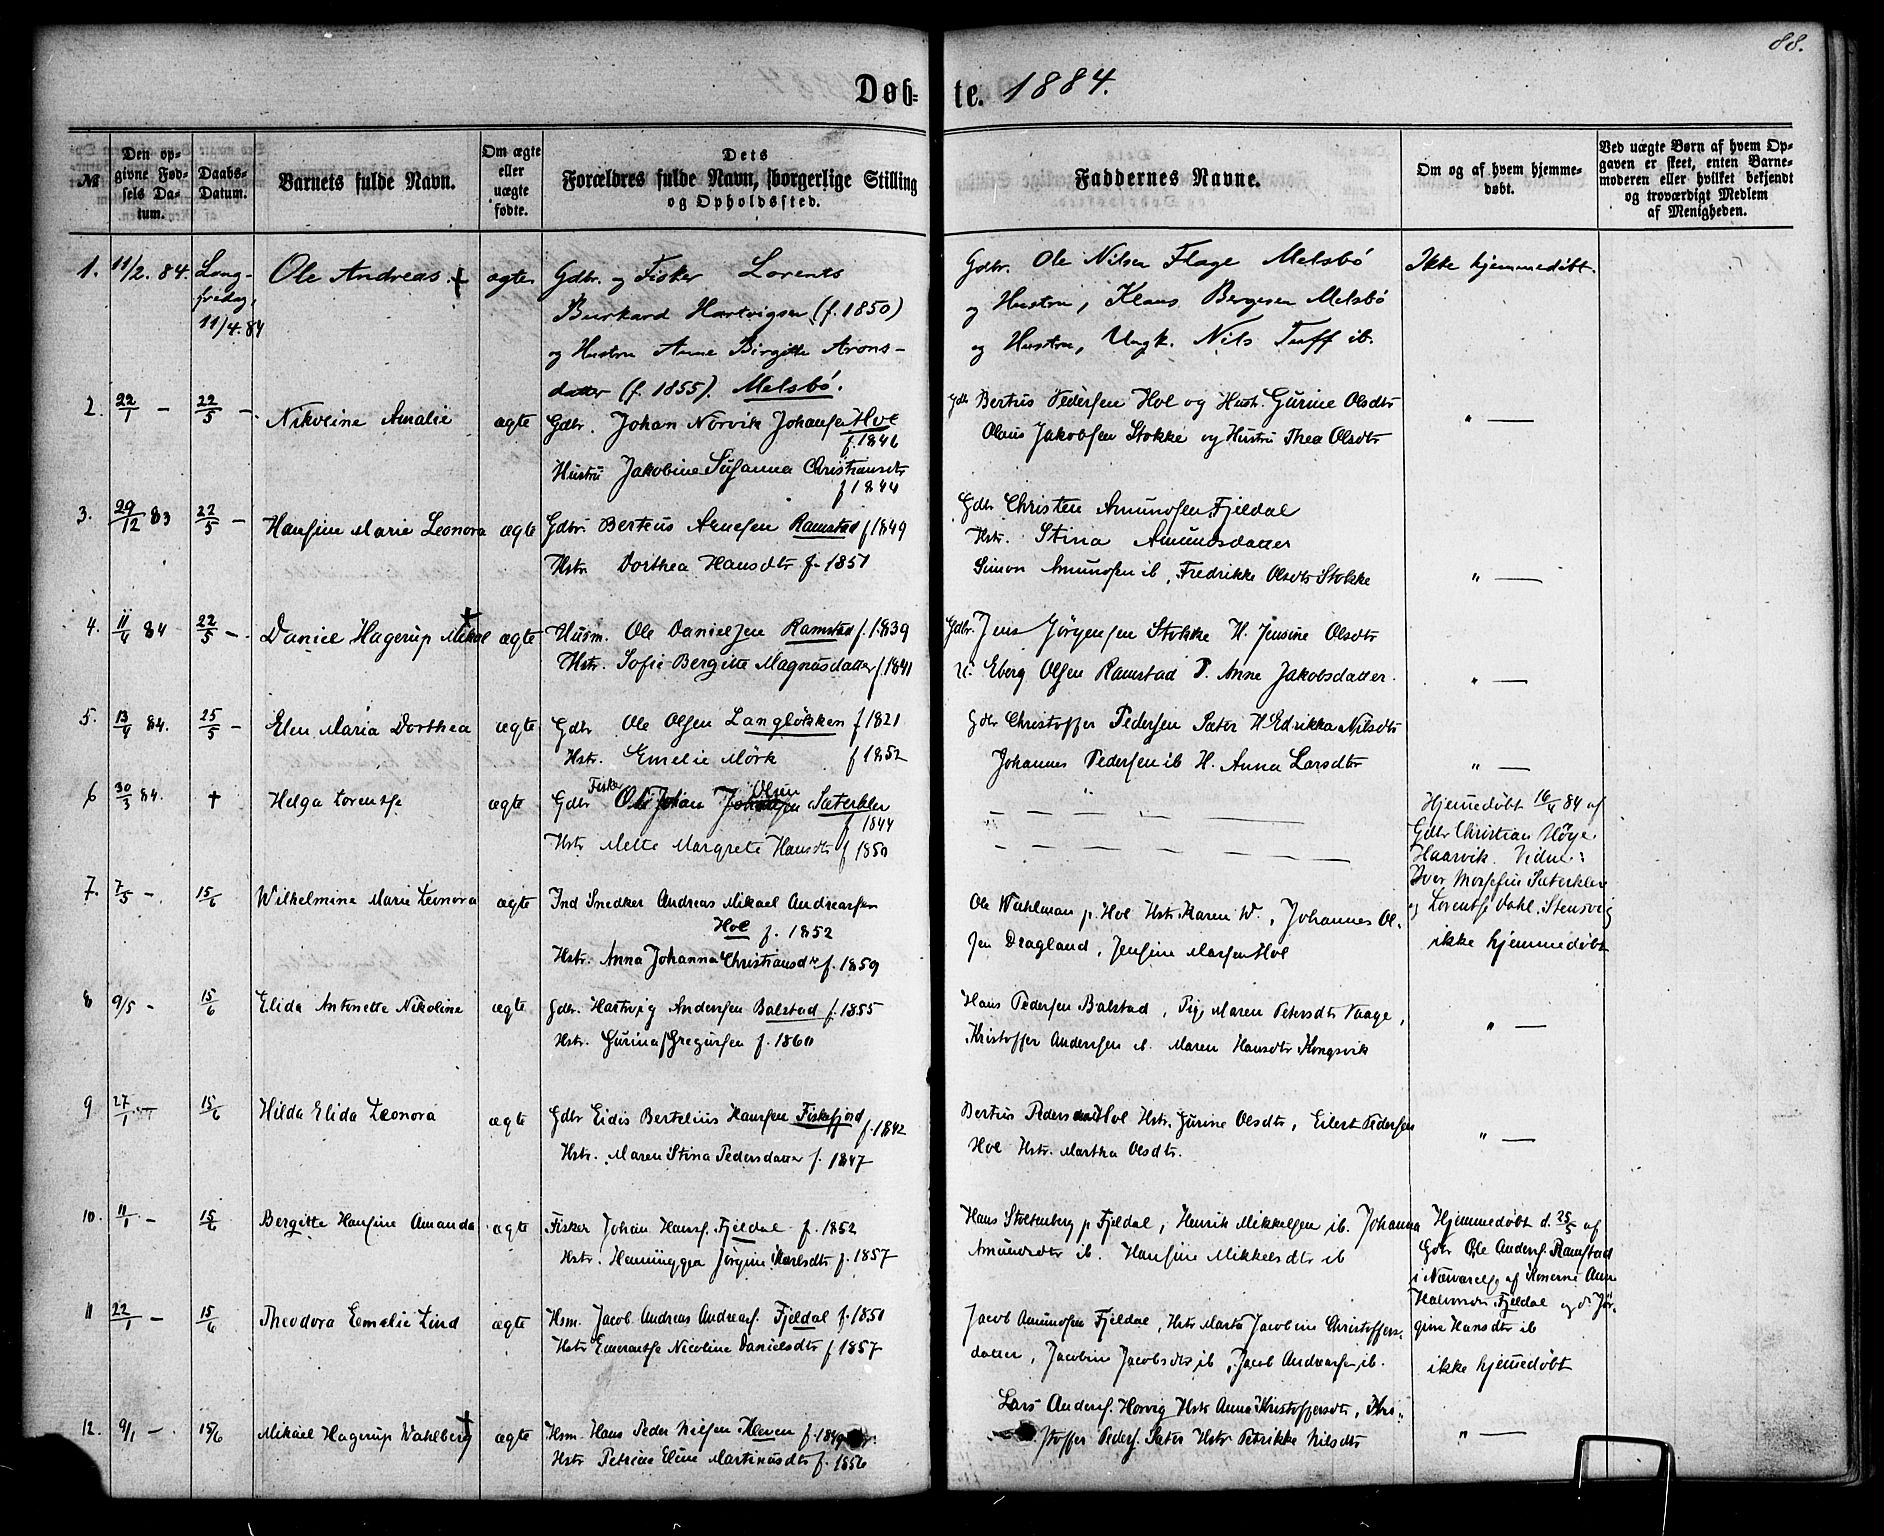 88.
Døb- te. 1884.
№
Den opgivne Fødsels Datum.
Daabs-Datum.
Barnets fulde Navn.
Om ægte eller uægte fødte.
Dets Forældres fulde Navn, borgerlige Stilling og Opholdssted.
Faddernes Navne.
Om og af hvem hjemmedøbt.
Ved uægte Børn af hvem Opgaven er skeet, enten Barnemoderen eller hvilket bekjendt og troværdigt Medlem af Menigheden.
1. 11/2. 84. Langfredag, 11/4. 84 Ole Andreas. + ægte
Gdbr. og Fisker Lorents
Burkard Hartvigsen (f. 1850)
og Hustru Anne Birgitte Arons-
datter (f. 1855). Melsbö.
Gdbr. Ole Nilsen Flage Melsbö
og Hustru, Klaus Bergesen Melsbö
og Hustru, Ungk. Nils Taff ib.
Ikke hjemmedöbt.
2. 22/1 — 22/5 —. Nikoline Amalie ægte
Gdbr. Johan Norvik Johansen Hol
f. 1846
Hustru Jakobine Susanna Christiansdtr
f 1844
Gdbr Bertus Pedersen Hol og Hust. Gurine Olsdtr
Olaus Jakobsen Stokke og Hustru Thea Olsdtr
" —
3. 29/12 83 22/5 — Hansine Marie Leonora ægte
Gdbr Berteus Arnesen Ramstad f 1849
Hstr Dorthea Hansdtr f. 1851
Gdbr Christen Amundsen Fjeldal
Hstr. Stina Amundsdatter
Simon Amundsen ib, Fredrikke Olsdtr Stokke
" —
4. 11/4 84 22/5 —. Daniel Hagerup Mikal + ægte
Husm. Ole Danielsen Ramstad f. 1839
Hstr. Sofie Bergitte Magnusdatter f. 1841
Gdbr. Jens Jörgensen Stokke H. Jensine Olsdtr
U. Eberg Olsen Ramstad P. Anne Jakobsdatter.
" —
5. 13/4 84. 25/5 — Elen Maria Dorthea ægte
Gdbr Ole Olsen Langløkken f 1821
Hstr. Emelie Mörk f 1852
Gdbr Christoffer Pedersen Sæter H Edrikka Nilsdtr
Johannes Pedersen ib H. Anna Larsdtr
" —
6 30/3 84. + Helga Lorentse ægte
Fisker Olsen
Gdbr Ole Johan Johansen Sæterklev
f 1844
Hstr Mette Margrete Hansdtr f 1850
Hjemmedöbt 16/4 84 af
Gdbr Christian Höye.
Haarvik. Vidne:
Iver Morsefin Sæterklev
og Lorentse Dahl, Stensvig
7. 7/5 —. 15/6 Wilhelmine Marie Leonora ægte
Ind Snedker Andreas Mikael Andreassen
Hol f. 1852
Hstr. Anna Johanna Christiansdtr f. 1859
Ole Wahlman p. Hol Hstr. Karen W., Johannes Ol-
sen Dragland, Jensine Marsen Hol
ikke hjemmedöbt
8 9/5 - 15/6 Elida Antonette Nikoline ægte
Gdbr. Hartvig Andersen Balstad f. 1855
Hstr. Gurina Gregursen f. 1860
Hans Pedersen Balstad, Pig. Maren Petersdtr Vaage,
Kristoffer Andersen ib. Maren Hansdtr Kongsvik
" —
9 27/1 - 15/6 Hilda Elida Leonora ægte
Gdbr Eidis Bertelius Hansen Fiskefjord
f. 1842
Hstr. Maren Stina Pedersdatter f. 1847
Bertus Pedersen Hol Hstr. Gurine Olsdtr, Eilert Pedersen
Hol Hstr. Martha Olsdtr.
" —
10. 11/1 - 15/6 Bergitte Hansine Amanda ægte
Fisker Johan Hans. Fjeldal f. 1852
Hstr. Henninggea Jörgine Karlsdtr f. 1857
Hans Stoltenberg p Fjeldal, Henrik Mikkelsen ib. Johanna
Amundsdtr ib. Hansine Mikkelsdtr ib
Hjemmedöbt d. 25/5 af
Gdbr Ole Anders. Ramstad
i Nærværelse af Konerne Ann
Halvorsdtr Fjeldal og d. Jör-
gine Hansdtr ib
11 22/1 — 15/6 Theodora Eemelie Lind ægte
Hsm. Jacob Andreas Andreas. Fjeldal f. 1851
Hstr Emerentse Nicoline Danielsdtr f 1857
Jacob Amundsen Fjeldal, Hstr Marta Jacobine Christoffers-
datter, Jacobine Jacobsdtr ib, Jacob Andreassen ib.
ikke hjemedöbt
12. 9/1 —. 15/6 Mikael Hagerup Wahlberg + ægte
Hsm. Hans Peder Nielsen Kleven f. 1849
Hstr Petrine Eline Martinusdtr f. 1856
Lars Anders. Horvig Hstr Anna Kristoffersdtr, Kri-
stoffer Peders. Sæter Hstr Petrikke Nilsdtr
" —